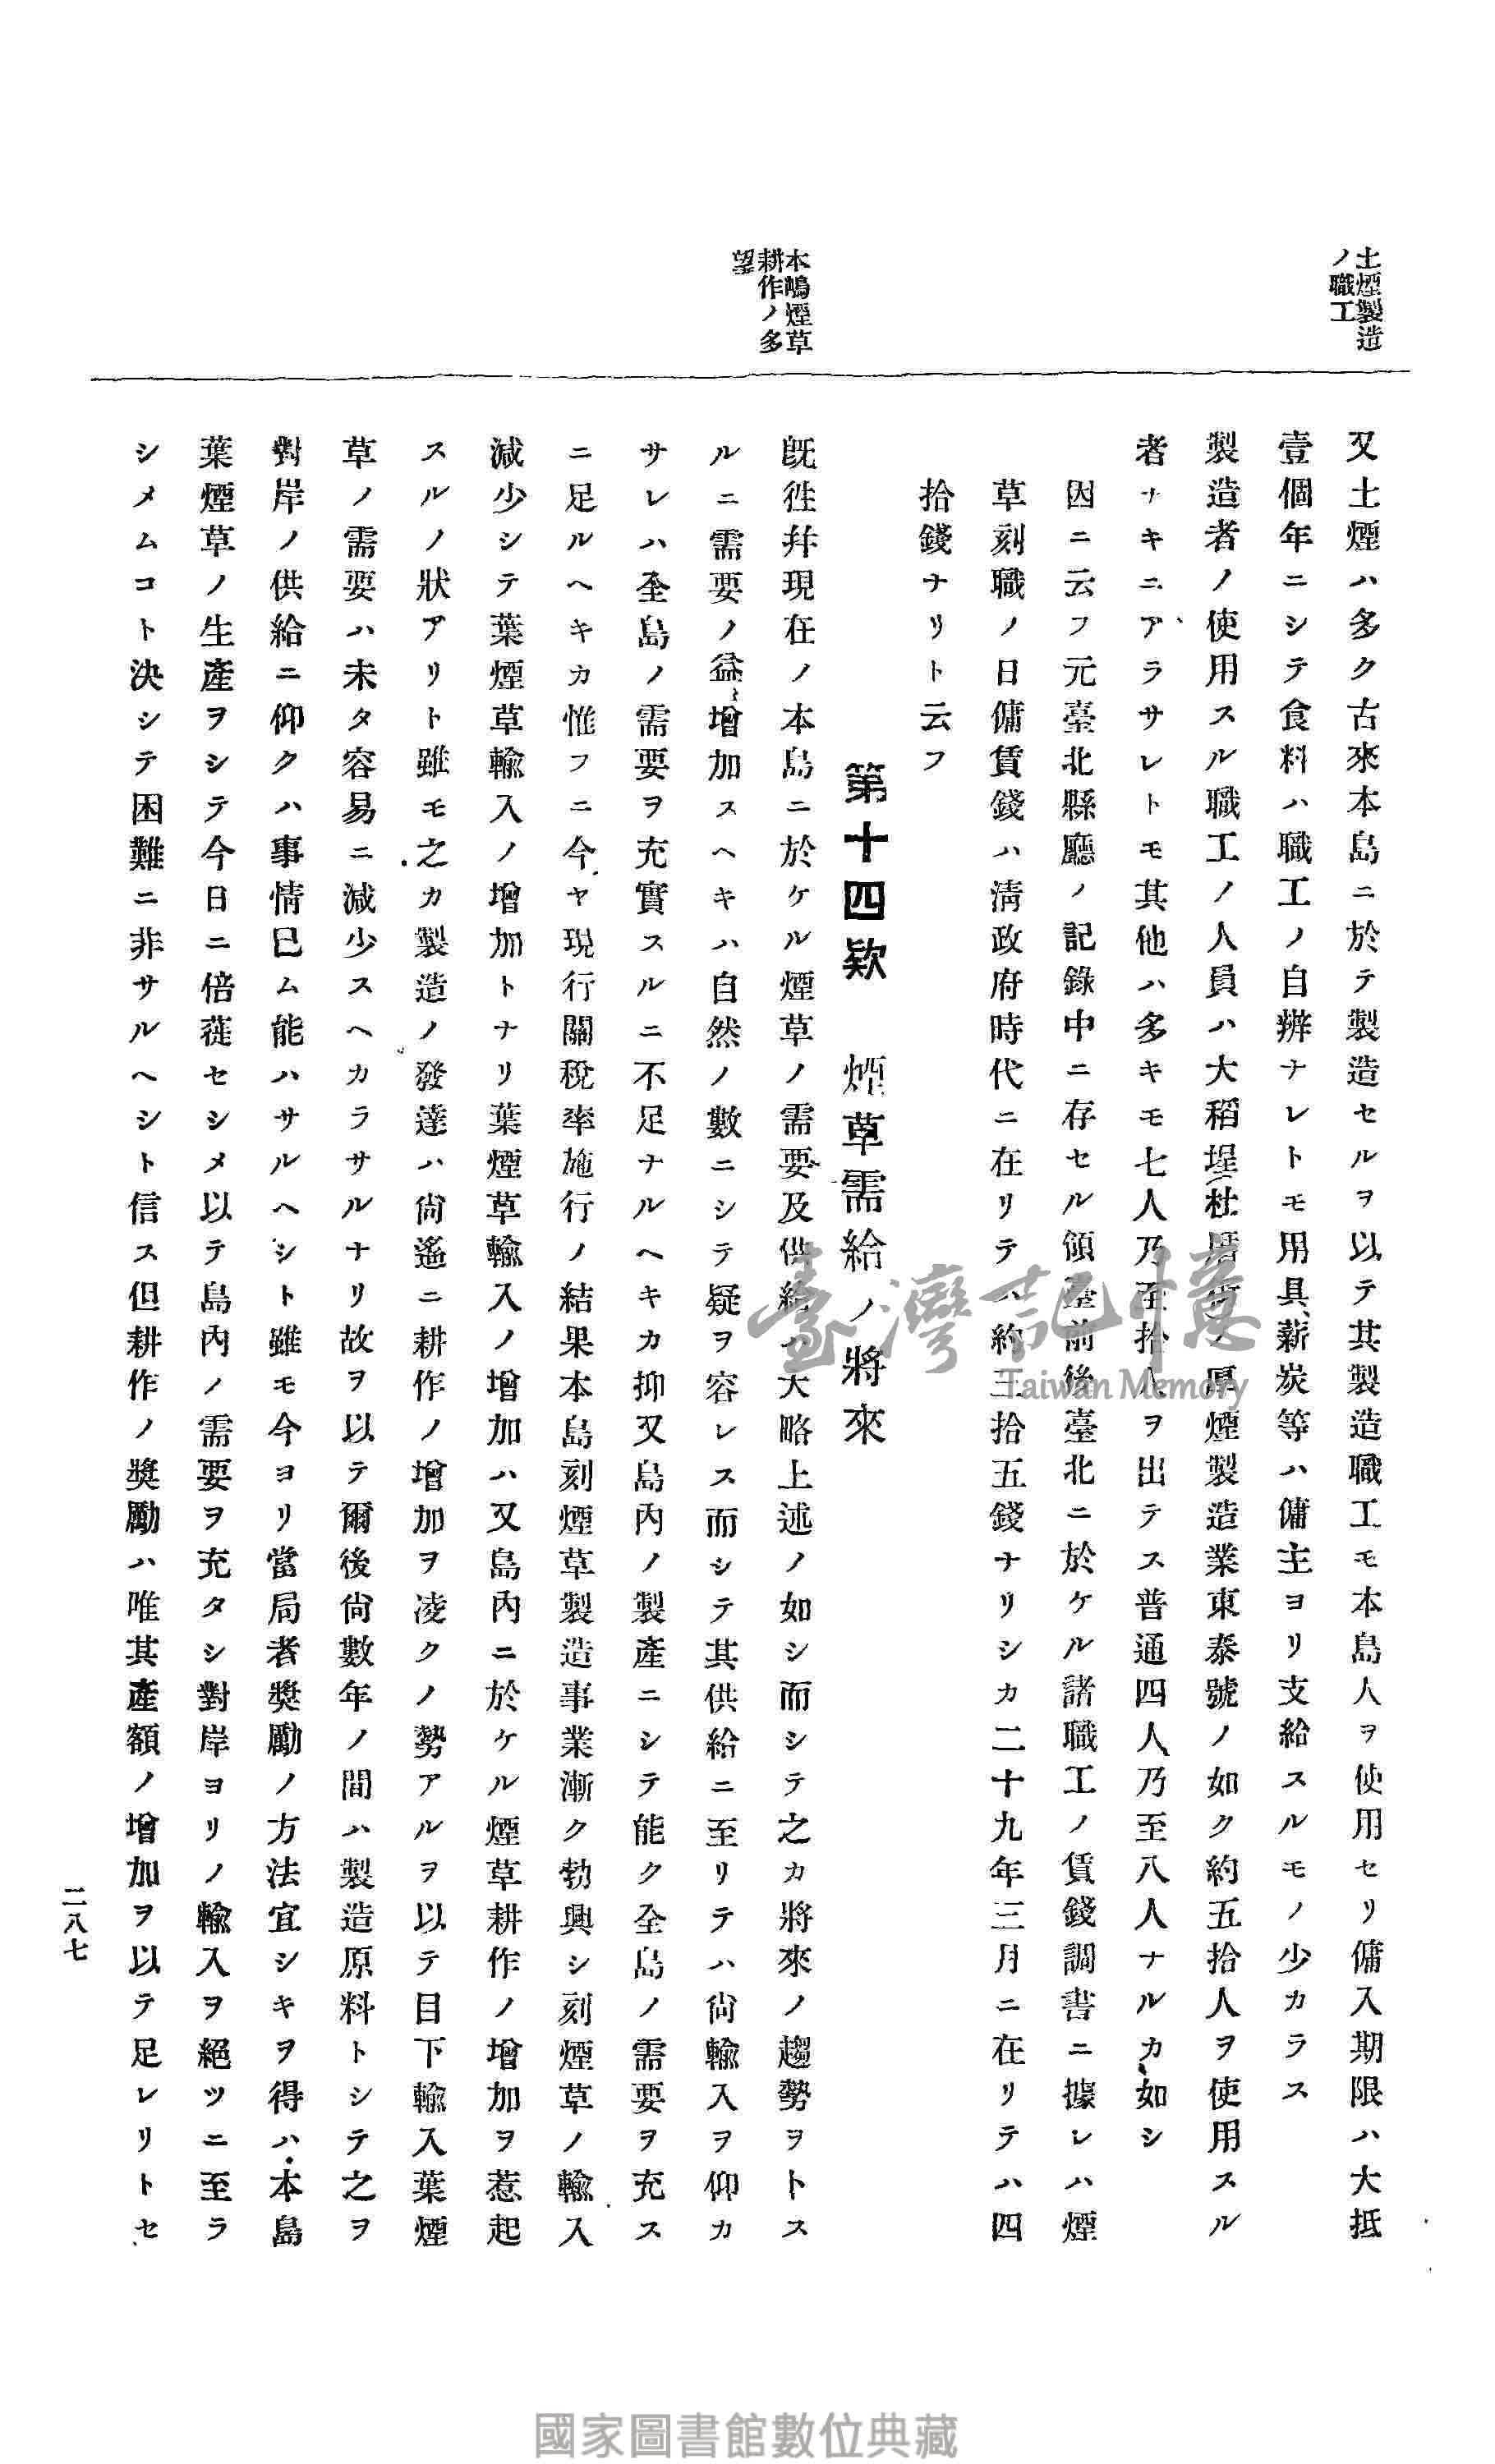 土煙製造
ノ職工
又土煙ハ多ク古來本島ニ於テ製造セルヲ以テ其製造職工モ本島人ヲ使用セリ傭入期限ハ大抵
壹個年ニシテ食料ハ職工ノ自辨ナレトモ用具、薪炭等ハ傭主ヨリ支給スルモノ少カラス
製造者ノ使用スル職工ノ人員ハ大稻埕杜厝街ノ厚煙製造業東泰號ノ如ク約五拾人ヲ使用スル
者ナキニアラサレトモ其他ハ多キモ七人乃至拾人ヲ出テス普通四人乃至八人ナルカ如シ
因ニ云フ元臺北縣廳ノ記錄中ニ存セル領臺前後臺北ニ於ケル諸職工ノ賃錢調書ニ據レハ煙
草刻職ノ日傭賃錢ハ淸政府時代ニ在リテハ約三拾五錢ナリシカ二十九年三月ニ在リテハ四
拾錢ナリト云フ
第十四欵 煙草需給ノ將來
本嶋煙草
耕作ノ多
望
旣往幷現在ノ本島ニ於ケル煙草ノ需要及供給ハ大略上述ノ如シ而シテ之カ將來ノ趨勢ヲトス
ルニ需要ノ益〻增加スヘキハ自然ノ數ニシテ疑ヲ容レス而シテ其供給ニ至リテハ尙輸入ヲ仰カ
サレハ全島ノ需要ヲ充實スルニ不足ナルヘキカ抑又島內ノ製產ニシテ能ク全島ノ需要ヲ充ス
ニ足ルヘキカ惟フニ今ヤ現行關稅率施行ノ結果本島刻煙草製造事業漸ク勃興シ刻煙草ノ輸入
減少シテ葉煙草輸入ノ增加トナリ葉煙草輸入ノ增加ハ又島內ニ於ケル煙草耕作ノ增加ヲ惹起
スルノ狀アリト雖モ之カ製造ノ發達ハ尙遙ニ耕作ノ增加ヲ凌クノ勢アルヲ以テ目下輸入葉煙
草ノ需要ハ未タ容易ニ減少スヘカラサルナリ故ヲ以テ爾後尙數年ノ間ハ製造原料トシテ之ヲ
對岸ノ供給ニ仰クハ事情已ム能ハサルヘシト雖モ今ヨリ當局者獎勵ノ方法宜シキヲ得ハ本島
葉煙草ノ生產ヲシテ今日ニ倍蓰セシメ以テ島內ノ需要ヲ充タシ對岸ヨリノ輸入ヲ絕ツニ至ラ
シメムコト決シテ困難ニ非サルヘシト信ス但耕作ノ獎勵ハ唯其產額ノ增加ヲ以テ足レリトセ
二八七
臺灣記憶
Taiwan Memory
國家圖書館數位典藏